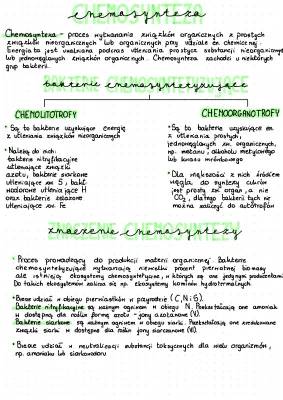 chemosynteza
Chemosynteza - proces wytwarzania związków organicznych z prostych
związków nieorganicznych lub organicznych przy udziale en. chemicznej.
Energia ta jest uwalniana podczas utleniania prostych substancji nieorganicznych
lub jednowęglowych związków organicznych. Chemosynteza zachodzi u niektórych
grup bakterii.
bakterie chemosyntetyzujące
CHEMOLITOTROFY
• Są to bakterie uzyskujące energię
z utleniania związków nieorganicznych
• Należą do nich:
bakterie nitryfikacyjne
utleniające związki
azotu, bakterie siarkowe
utleniające zw. S, bakt.
wodorowe utleniające H
oraz bakterie żelazowe
utleniające zw. Fe
CHEMOORGANOTROFY
• Są to bakterie uzyskujące en.
z utleniania prostych,
jednowęglowych zw. organicznych,
np. metanu, alkoholu metylowego
lub kwasu mrówkowego
• Dla większości z nich źródłem
węgla do syntezy cukrów
jest prosty zw. organ., a nie
CO₂, dlatego bakterii tych nie
można zaliczyć do autotrofów
znaczenie chemosyntezy
• Proces prowadzący do produkcji materii organicznej. Bakterie
chemosyntetyzujące wytwarzają niewielki procent pierwotnej biomasy
ale istnieją ekosystemy chemosyntetyczne, w których są one jedynymi producentami
Do takich ekosystemów zalicza się np. ekosystemy kominów hydrotermalnych
• Bierze udział w obiegu pierwiastków w przyrodzie (C, N i S).
Bakterie nitryfikacyjne są ważnym ogniwem w obiegu N. Przekształcają one amoniak
w dostępną dla roślin formę azotu - jony azotanowe (V).
Bakterie siarkowe są ważnym ogniwem w obiegu siarki. Przekształcają one zredukowane
związki siarki w dostępne dla roślin jony siarczanowe (VI).
• Bierze udział w neutralizacji substancji toksycznych dla wielu organizmów,
np. amoniaku lub siarkowodoru.